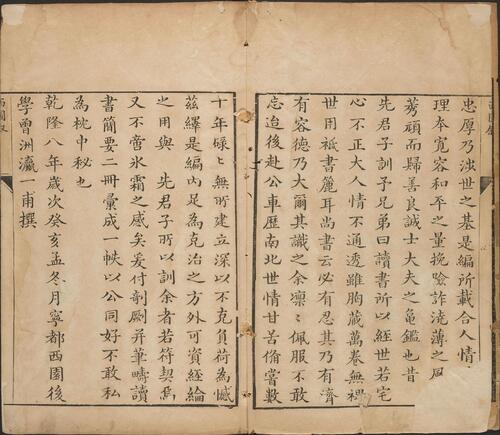 忠厚乃涉世之基是編所載合人情
理本寛容和平之量挽險詐澆薄之風
莠頑而歸善良誠士大夫之龜鑑也昔
先君子訓子兄弟曰讀書所以經世若宅
心不正大人情不通透雖胸藏萬卷無裨
世用祗書簏耳尚書云必有忍其乃有濟
有容德乃大爾其識之余凜〻佩服不敢
忘迨後赴公車歷南北世情甘苦備嘗數
十年碌〻無所建立深以不克負荷為憾
茲繹是編內足為克治之方外可資經綸
之用與 先君子所以訓余者若符契焉
又不啻氷霜之感矣爰付剞劂并筆疇讀
書簡要二冊彙成一帙以公同好不敢私
為枕中秘也
乾隆八年歲次癸亥孟冬月寧都西園後
學曾洲瀛一甫撰